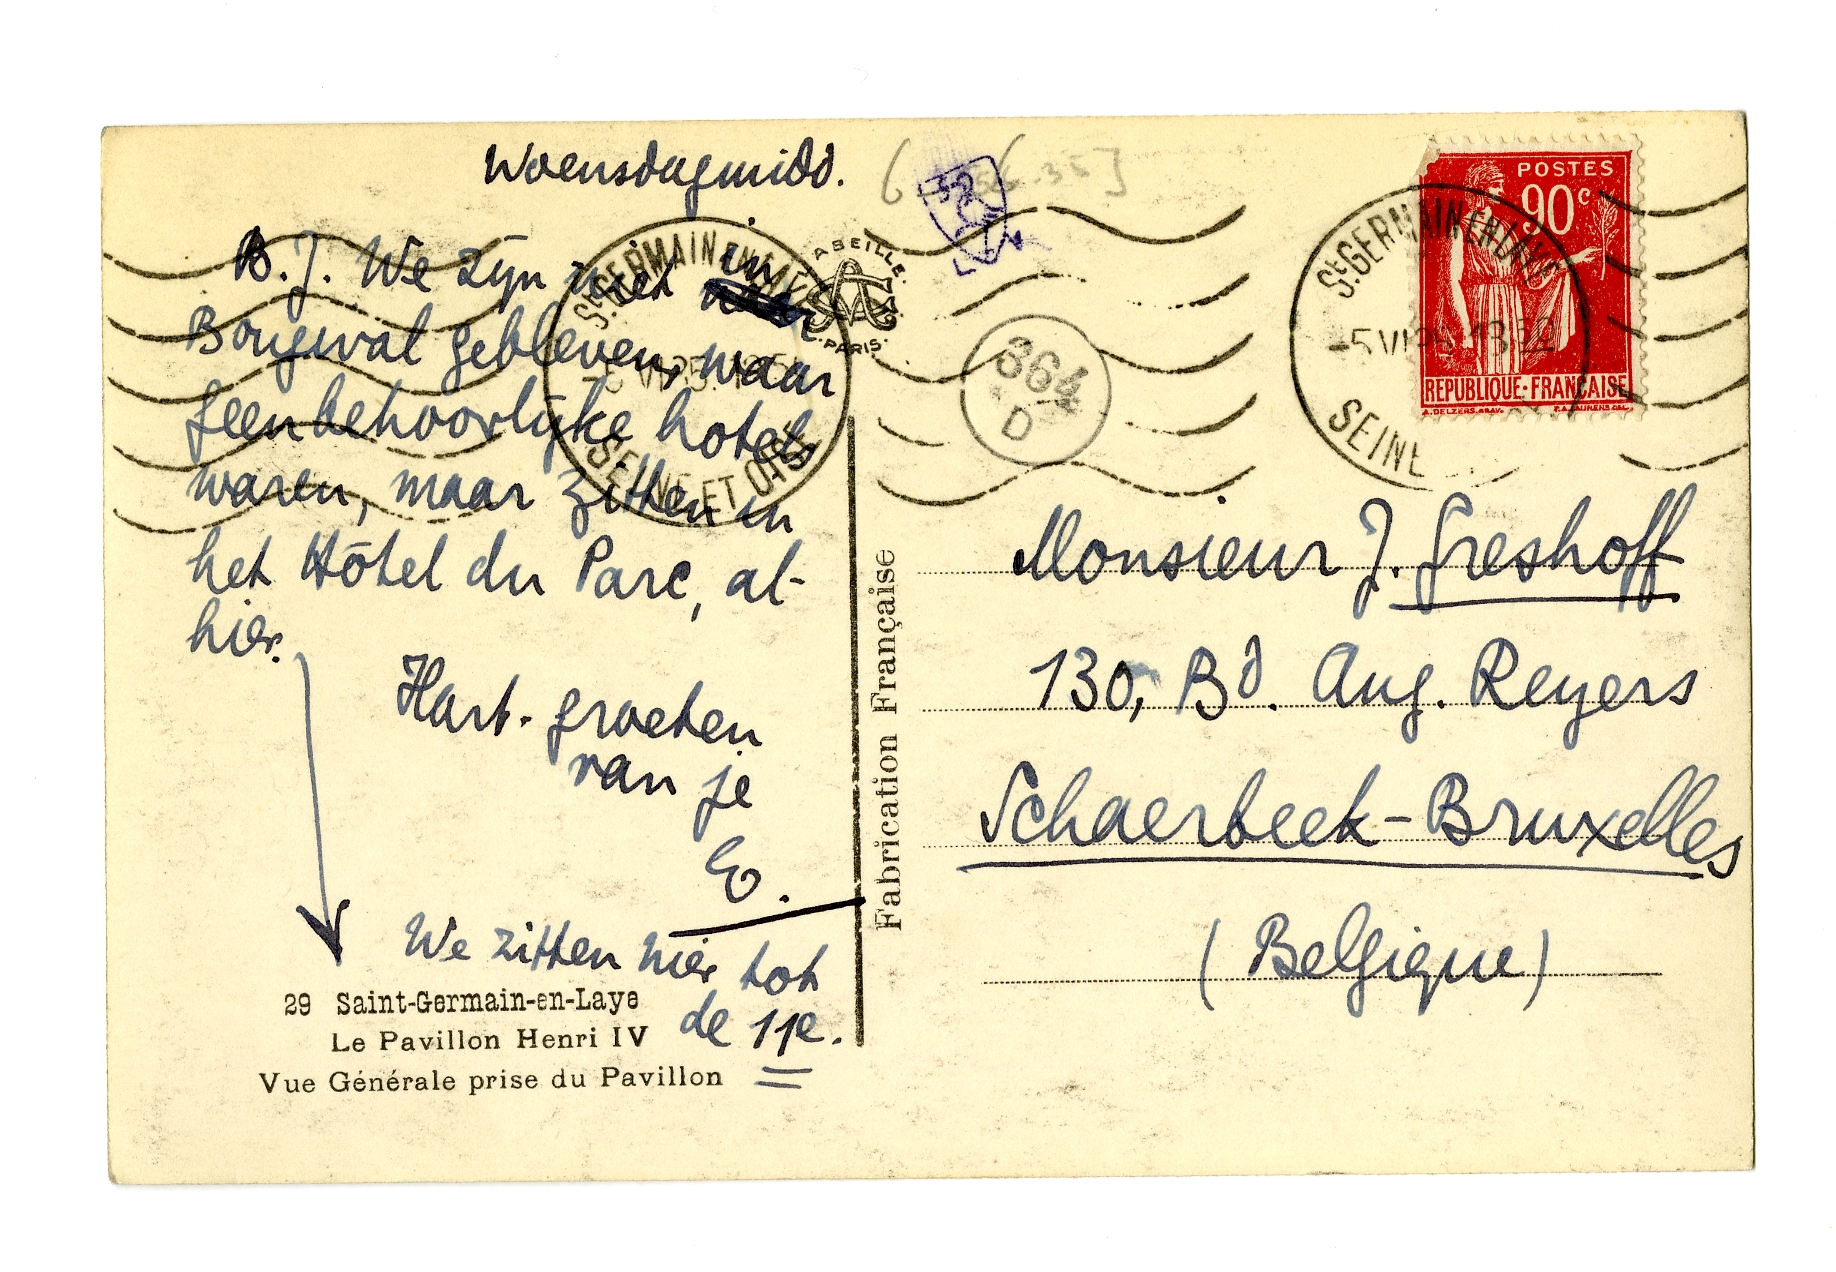 Woensdagmidd.
B. J. We zijn niet in
Bougival gebleven, waar
geen behoorlijke hotels
waren, maar zitten in
het Hôtel du Parc, al-
hier.
Hart. groeten
van je
E.
We zitten hier tot
de 11e.
29 Saint-Germain-en-Laye
Le Pavillon Henri IV
Vue Générale prise du Pavillon
ABEILLE
PARIS.
St GERMAIN EN LAYE
SEINE ET OISE
Fabrication Française
364
D
St GERMAIN EN LAYE
-5 VI
SEINE
POSTES
90c
REPUBLIQUE·FRANÇAISE
Monsieur J. Greshoff
130, Bd. Aug. Reyers
Schaerbeek-Bruxelles
(Belgique)